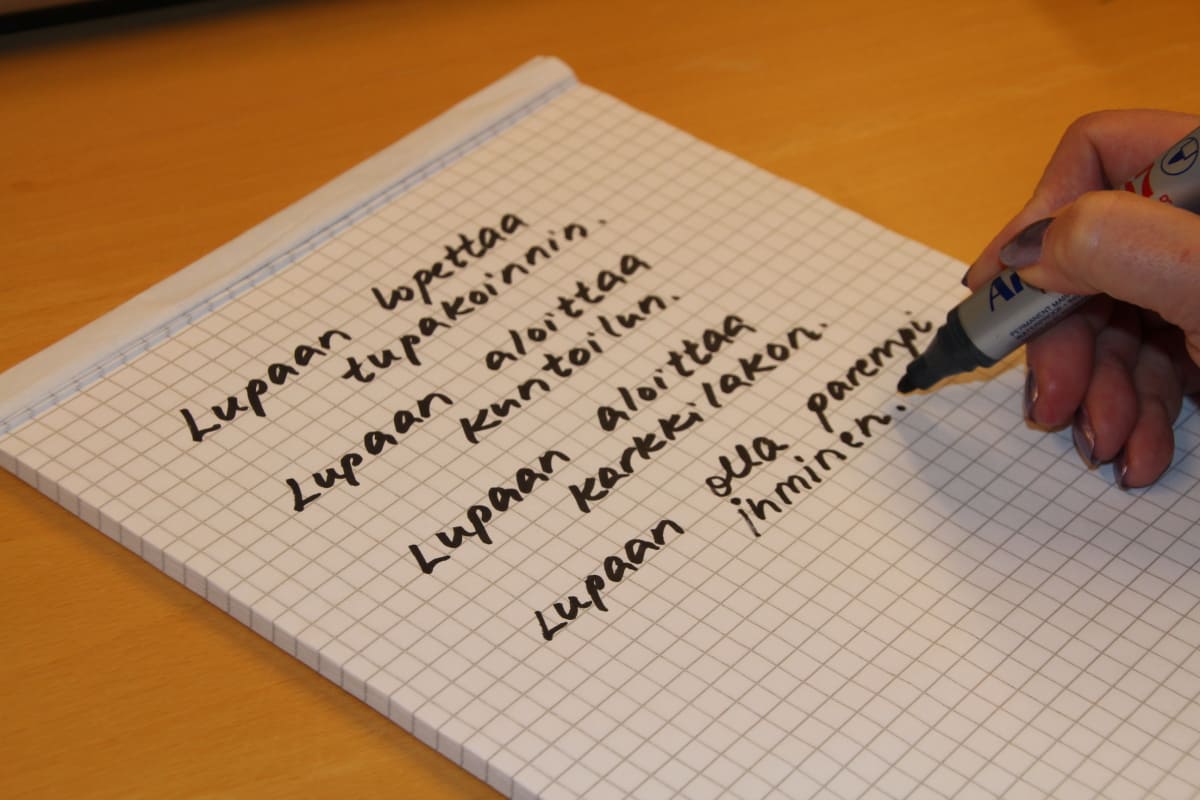 Lupaan lopettaa
tupakoinnin.
Lupaan aloittaa
kuntoilun.
Lupaan aloittaa
karkkilakon.
Lupaan olla parempi
ihminen.
PERMANENT